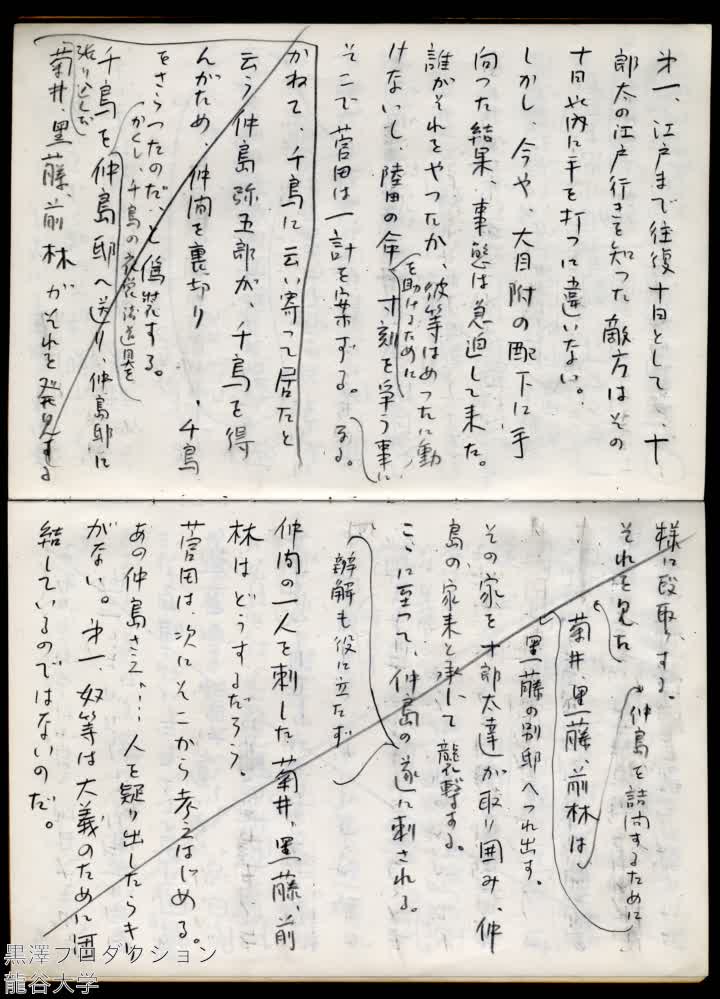 第一、江戸まで往復十日として、十
郎太の江戸行きを知った敵方はその
十日以内に手を打つに違いない。
しかし、今や、大目附の配下に手
向った結果、事態は急迫して来た。
誰がそれをやったか、彼等はめったに動
けないし、陸田の命を助けるために寸刻を争う事に
なる。
そこで菅田は一計を案ずる。
かねて、千鳥に云い寄って居たと
云う仲島弥五郎が、千鳥を得
んがため、仲間を裏切り、千鳥
をさらったのだ、と偽装する。
かくし、千鳥の衣裳諸道具を
千鳥を仲島邸へ送り、仲島邸に
張り込んだ
菊井、黒藤、前林がそれを発見する
様に段取りする。
それを見た
仲島を詰問するために
菊井、黒藤、前林は、
黒藤の別邸へつれ出す。
その家を十郎太達が取り囲み、仲
島の家来と承して襲撃する。
ここに至って、仲島の遂に刺される。
弁解も役に立たず
仲間の一人を刺した菊井、黒藤、前
林はどうするだろう。
菅田は次にそこから考えはじめる。
あの仲島さえ……人を疑り出したらキリ
がない。第一、奴等は大義のために団
結しているのではないのだ。
黒澤プロダクション
龍谷大学